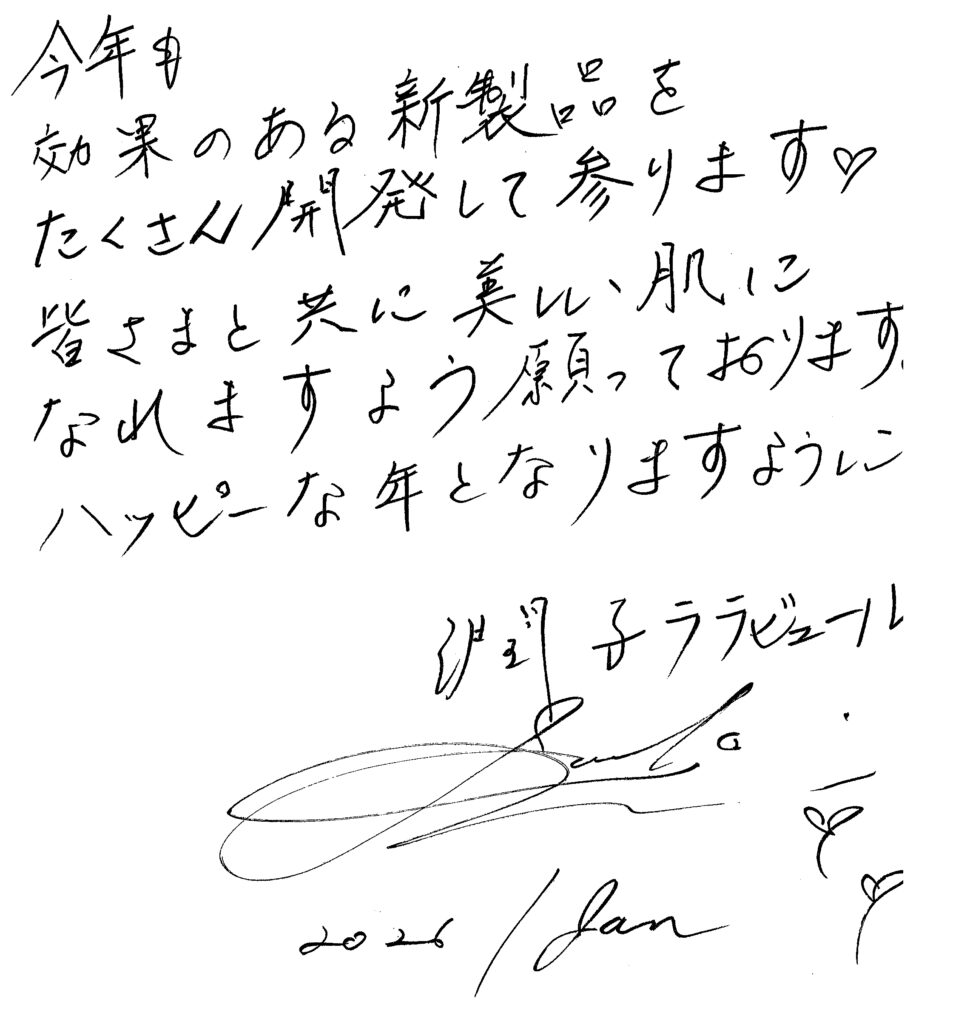 今年も
効果のある新製品を
たくさん開発して参ります♡
皆さまと共に美しい肌に
なれますよう願っております.
ハッピーな年となりますように
潤子ララビュール
2026/Jan